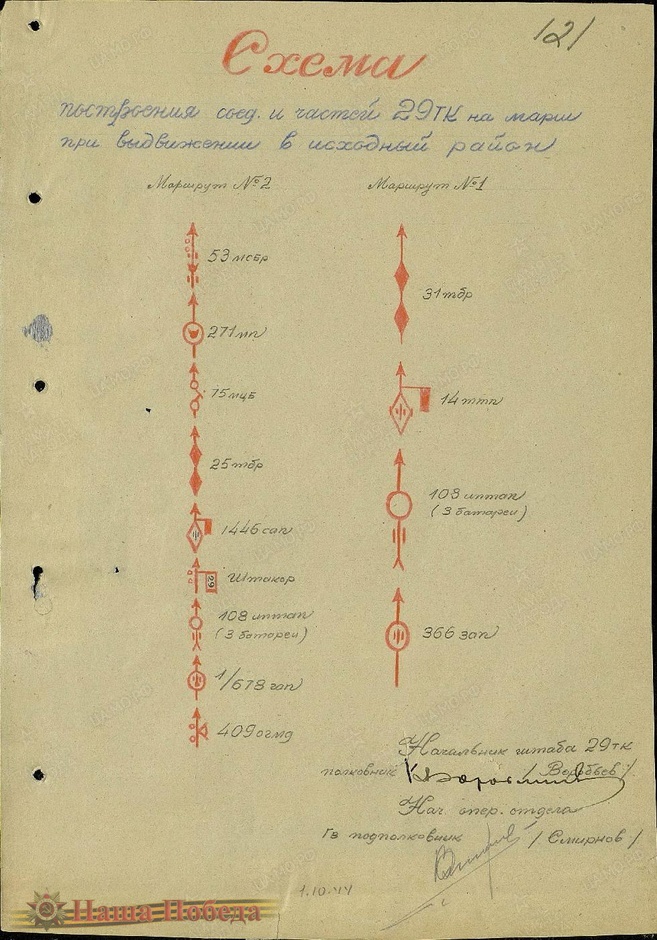 121
Схема
построения соед. и частей 29ТК на марш
при выдвижении в исходный район
Маршрут №2
53 мсбр
271 мп
75 мцб
25 тбр
1446 сап
29
Штакор
108 иптап
(3 батареи)
1/678 гап
409 огмд
Маршрут №1
31 тбр
14 ттп
108 иптап
(3 батареи)
366 зап
Начальник штаба 29 тк
полковник /Воробьев/
Нач. опер. отдела
Гв подполковник /Смирнов/
1.10.44
Наша Победа